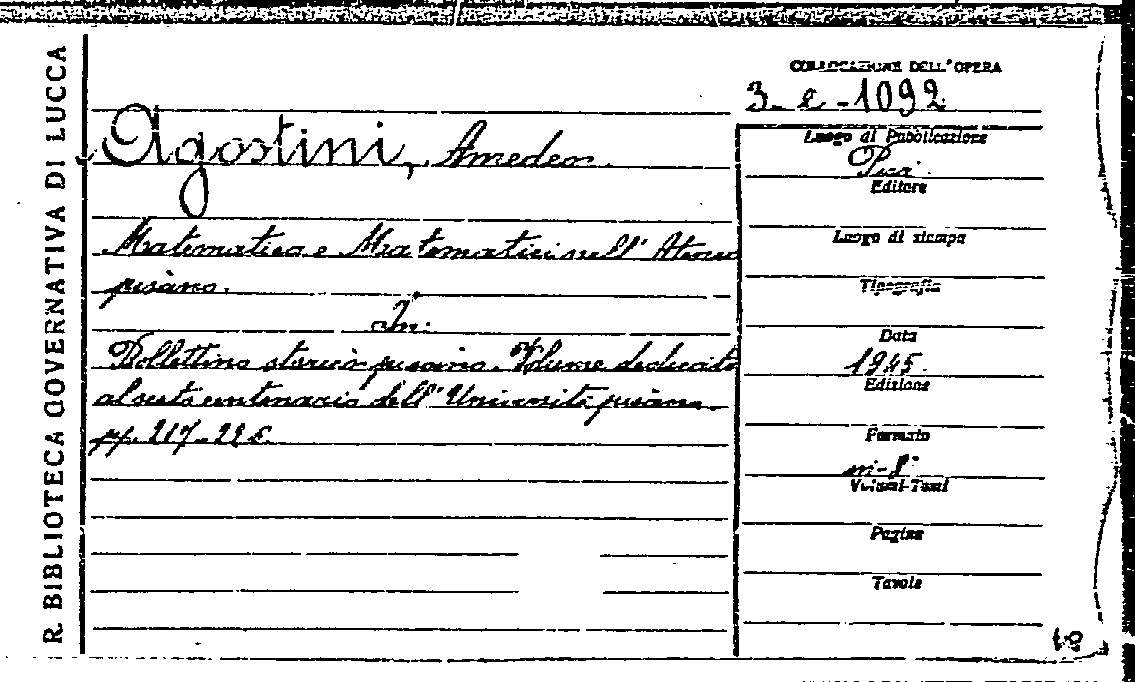 R. BIBLIOTECA GOVERNATIVA DI LUCCA
COLLOCAZIONE DELL'OPERA
3- e -1092
Agostini, Amedeo.
Matematica e Matematici nell'Ateneo
pisano.
In:
Bollettino storico pisano. Volume dedicato
al sesto centenario dell'Università pisana.
pp. 217-22
Luogo di Pubblicazione
Pisa
Editore
Luogo di stampa
Tipografia
Data
1945.
Edizione
Formato
in-8°
Volumi-Tomi
Pagine
Tavole